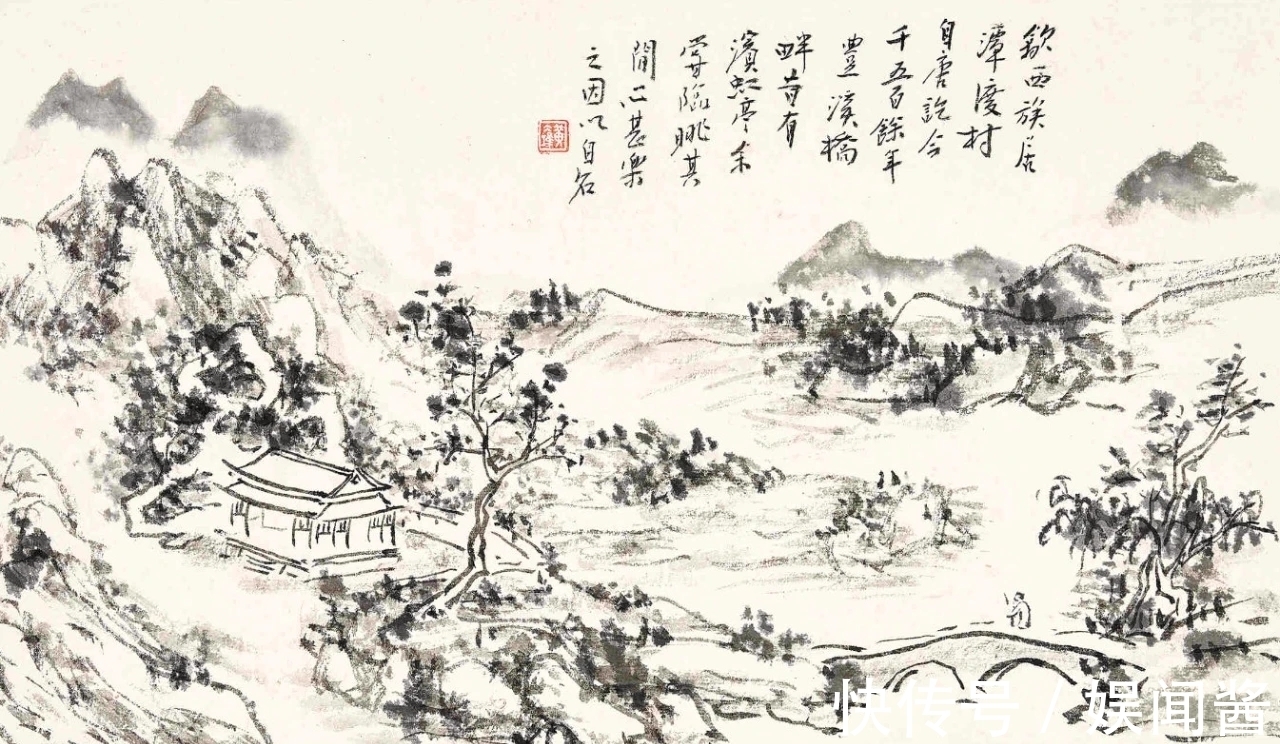 歙西族居
潭渡村
自唐訖今
千五百餘年
豊溪橋
畔昔有
濱虹亭余
嘗臨眺其
間心甚樂
之因以自名
快传号 / 娱闻酱